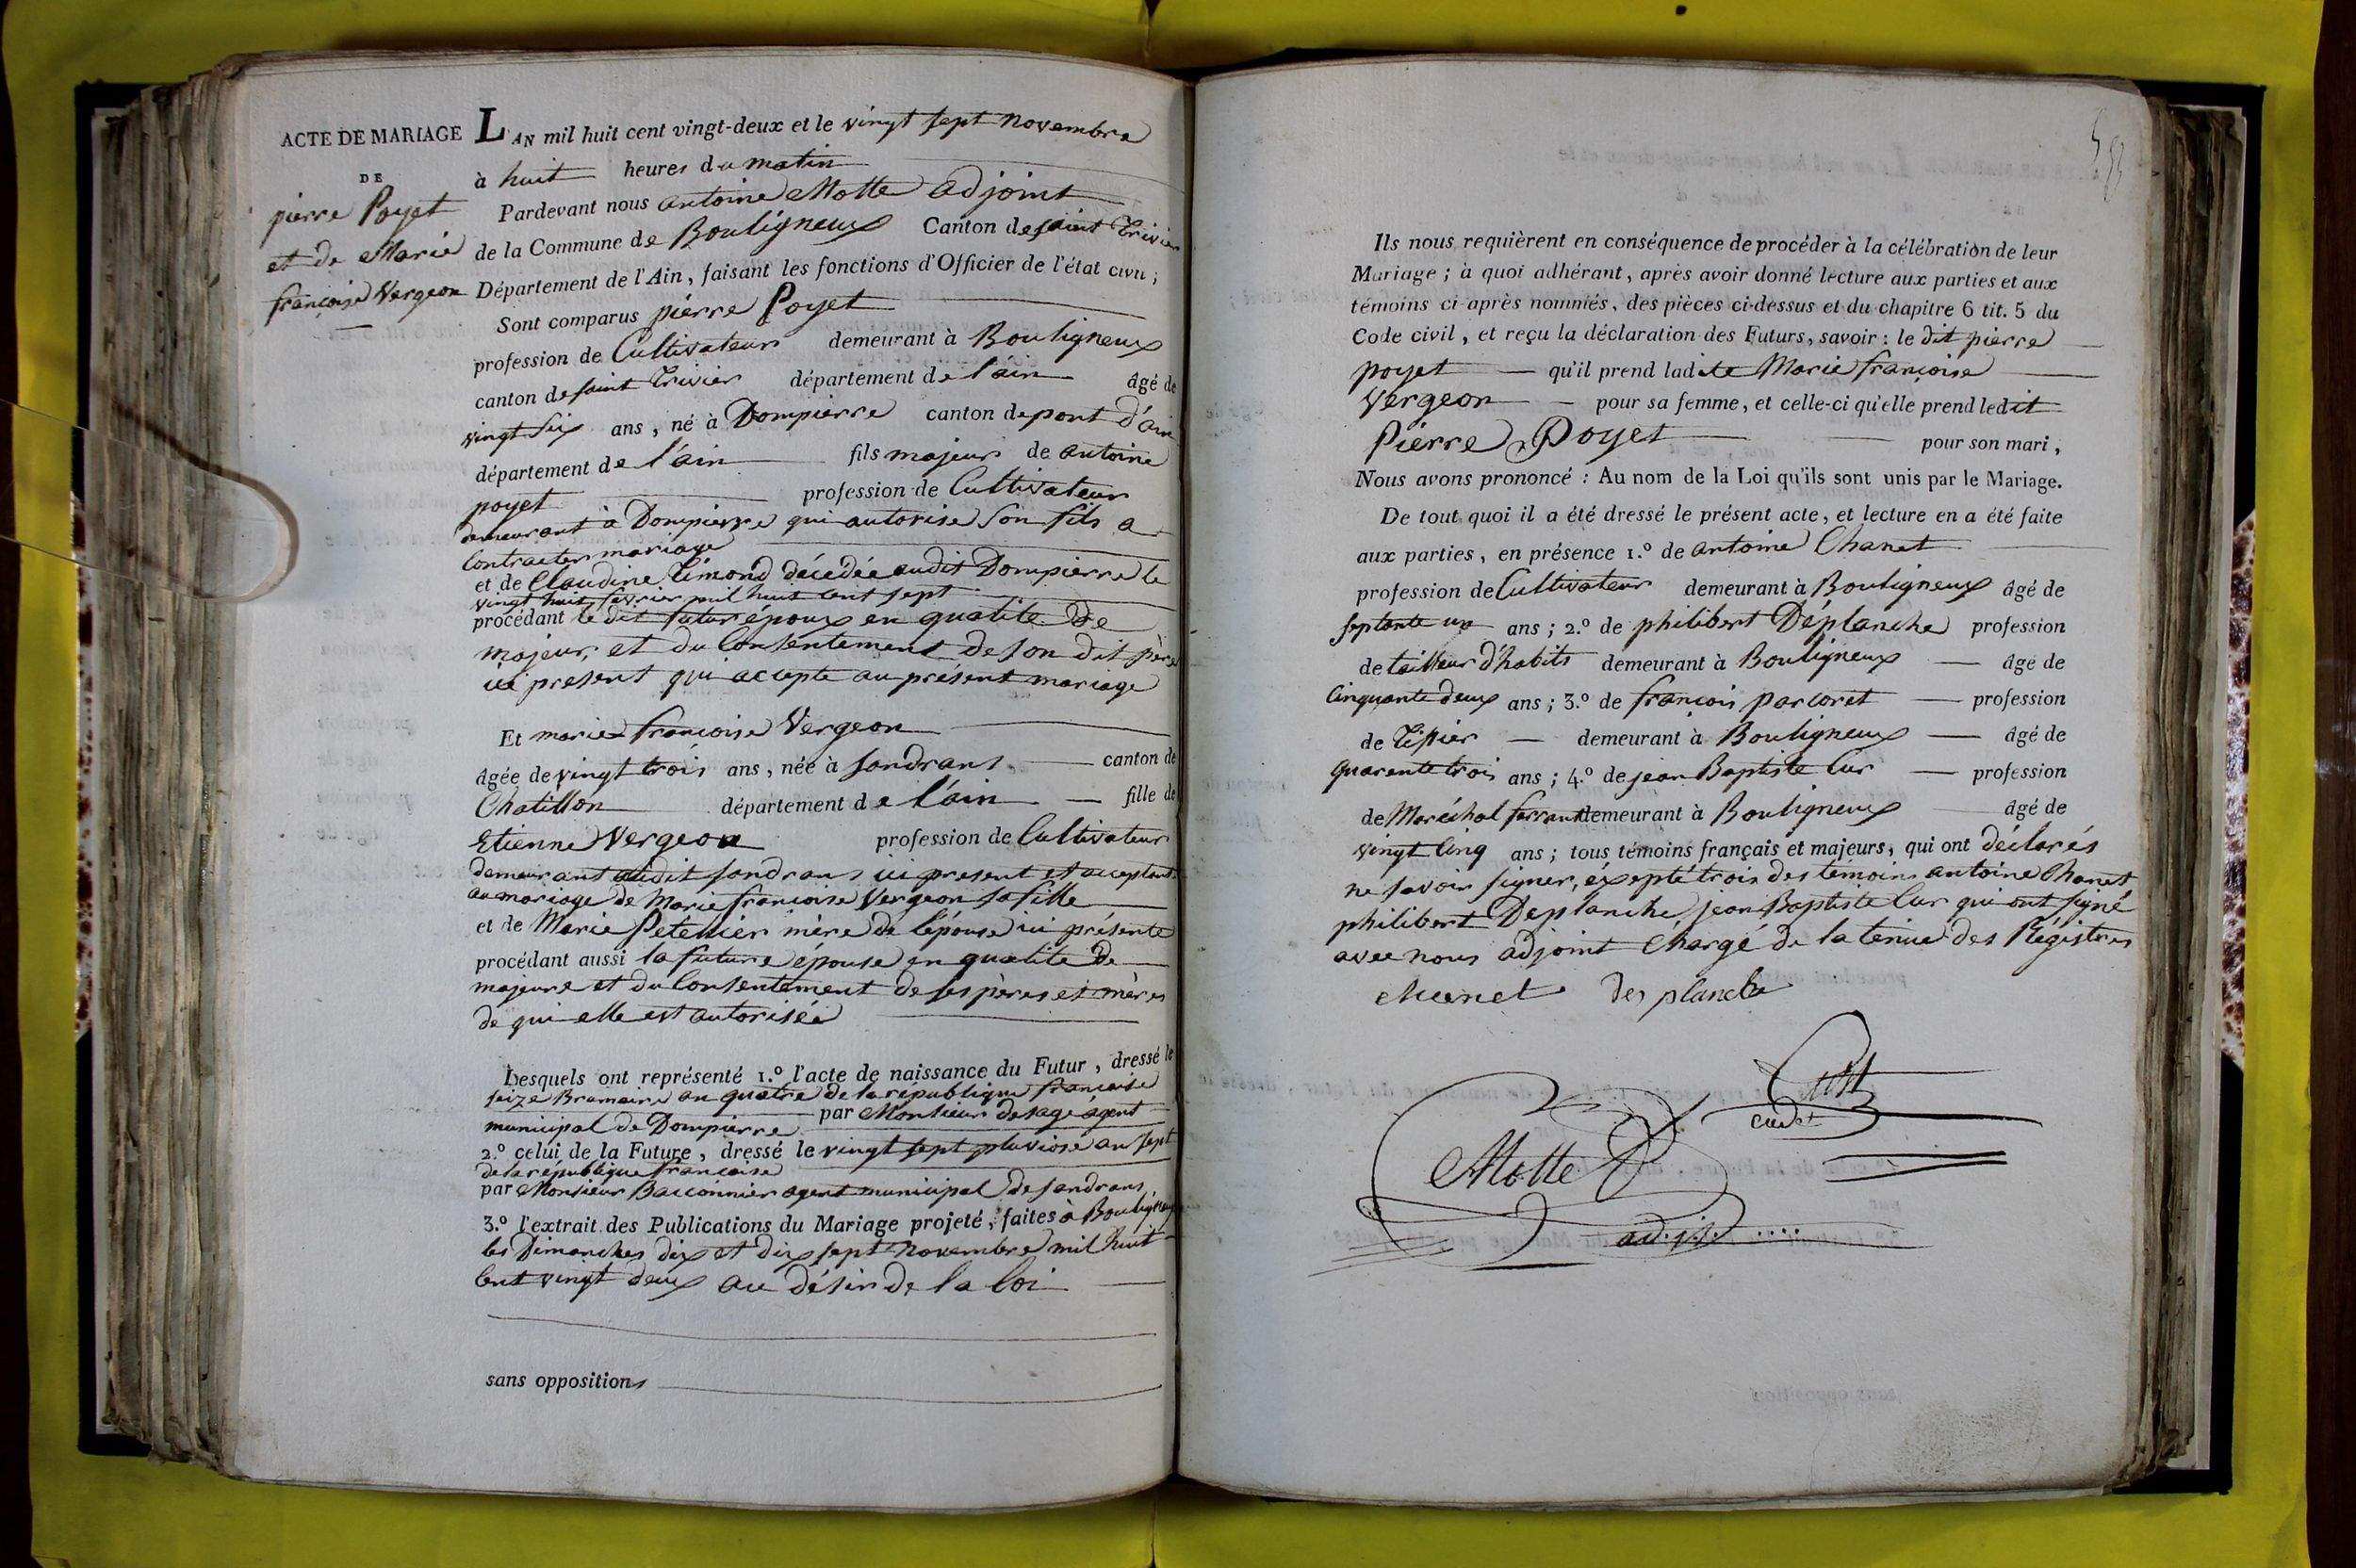 ACTE DE MARIAGE
DE
pierre Poyet
et de Marie
françoise Vergeon
L'AN mil huit cent vingt-deux et le vingt sept novembre
à huit heures du matin
Pardevant nous antoine Motte adjoint
de la Commune de Bouligneux Canton de saint Trivier
Département de l'Ain, faisant les fonctions d'Officier de l'état civil;
Sont comparus pierre Poyet
profession de Cultivateur demeurant à Bouligneux
canton de saint Trivier département de l'ain âgé de
vingt six ans, né à Dompierre canton de pont d'ain
département de l'ain fils majeur de antoine
poyet profession de Cultivateur
demeurant à Dompierre qui autorise son fils a
Contracter mariage
et de Claudine Timond décedée audit Dompierre le
vingt huit fevrier mil huit cent sept
procédant le dit futur époux en qualite de
majeur, et du Consentement de son dit père
ici present qui accepte au présent mariage
Et marie françoise Vergeon
âgée de vingt trois ans, née à sandrans canton de
Chatillon département de l'ain fille de
Etienne Vergeon profession de Cultivateur
demeurant audit sandrans ici present et acceptant
au mariage de Marie françoise Vergeon sa fille
et de Marie Petellier mère de l'épouse ici présente
procédant aussi la future épouse en qualite de
majeure et du Consentement de ses pères et mères
de qui elle est autorisée
Lesquels ont représenté 1.º l'acte de naissance du Futur, dressé le
seize Brumaire an quatre de la république française
par Monsieur desage agent
municipal de Dompierre
2.º celui de la Future, dressé le vingt sept pluviose an sept
de la république française
par Monsieur Bacconnier agent municipal de sandrans
3.º l'extrait des Publications du Mariage projeté, faites à Bouligneux
les Dimanches dix et dix sept novembre mil huit
Cent vingt deux au désir de la loi
sans oppositions
Ils nous requièrent en conséquence de procéder à la célébration de leur
Mariage; à quoi adhérant, après avoir donné lecture aux parties et aux
témoins ci après nommés, des pièces ci-dessus et du chapitre 6 tit. 5 du
Code civil, et reçu la déclaration des Futurs, savoir: le dit pierre
poyet qu'il prend ladite Marie françoise
Vergeon pour sa femme, et celle-ci qu'elle prend ledit
Pierre Poyet pour son mari,
Nous avons prononcé: Au nom de la Loi qu'ils sont unis par le Mariage.
De tout quoi il a été dressé le présent acte, et lecture en a été faite
aux parties, en présence 1.º de antoine Chanet
profession de Cultivateur demeurant à Bouligneux âgé de
septante un ans; 2.º de philibert Déplanche profession
de tailleur d'habits demeurant à Bouligneux âgé de
Cinquante deux ans; 3.º de françois parcoret profession
de Tissier demeurant à Bouligneux âgé de
quarante trois ans; 4.º de jean Baptiste Cur profession
de Maréchal ferrant demeurant à Bouligneux âgé de
vingt Cinq ans; tous témoins français et majeurs, qui ont déclarés
ne savoir signer, éxcepté trois des témoins antoine Chanet
philibert Deplanche, jean Baptiste Cur qui ont signé
avec nous adjoint Chargé de la tenue des Régistres
Chanet des planche
cadet
Motte
adj.